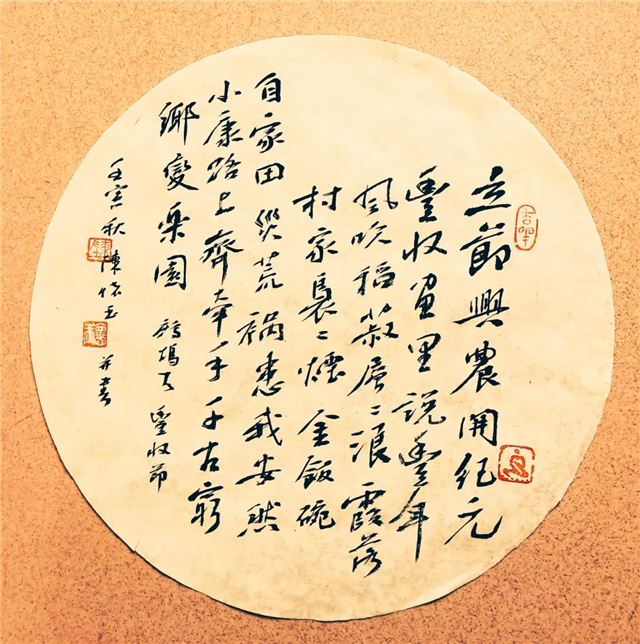 立節興農開紀元
豐收畫里說豐年
風吹稻菽層〻浪霞落
村家裊〻煙金飯碗
自家田災荒禍患我安然
小康路上齊牽手千古窮
鄉變樂園 鷓鴣天 豐收節
壬寅秋 陳 玉 并書